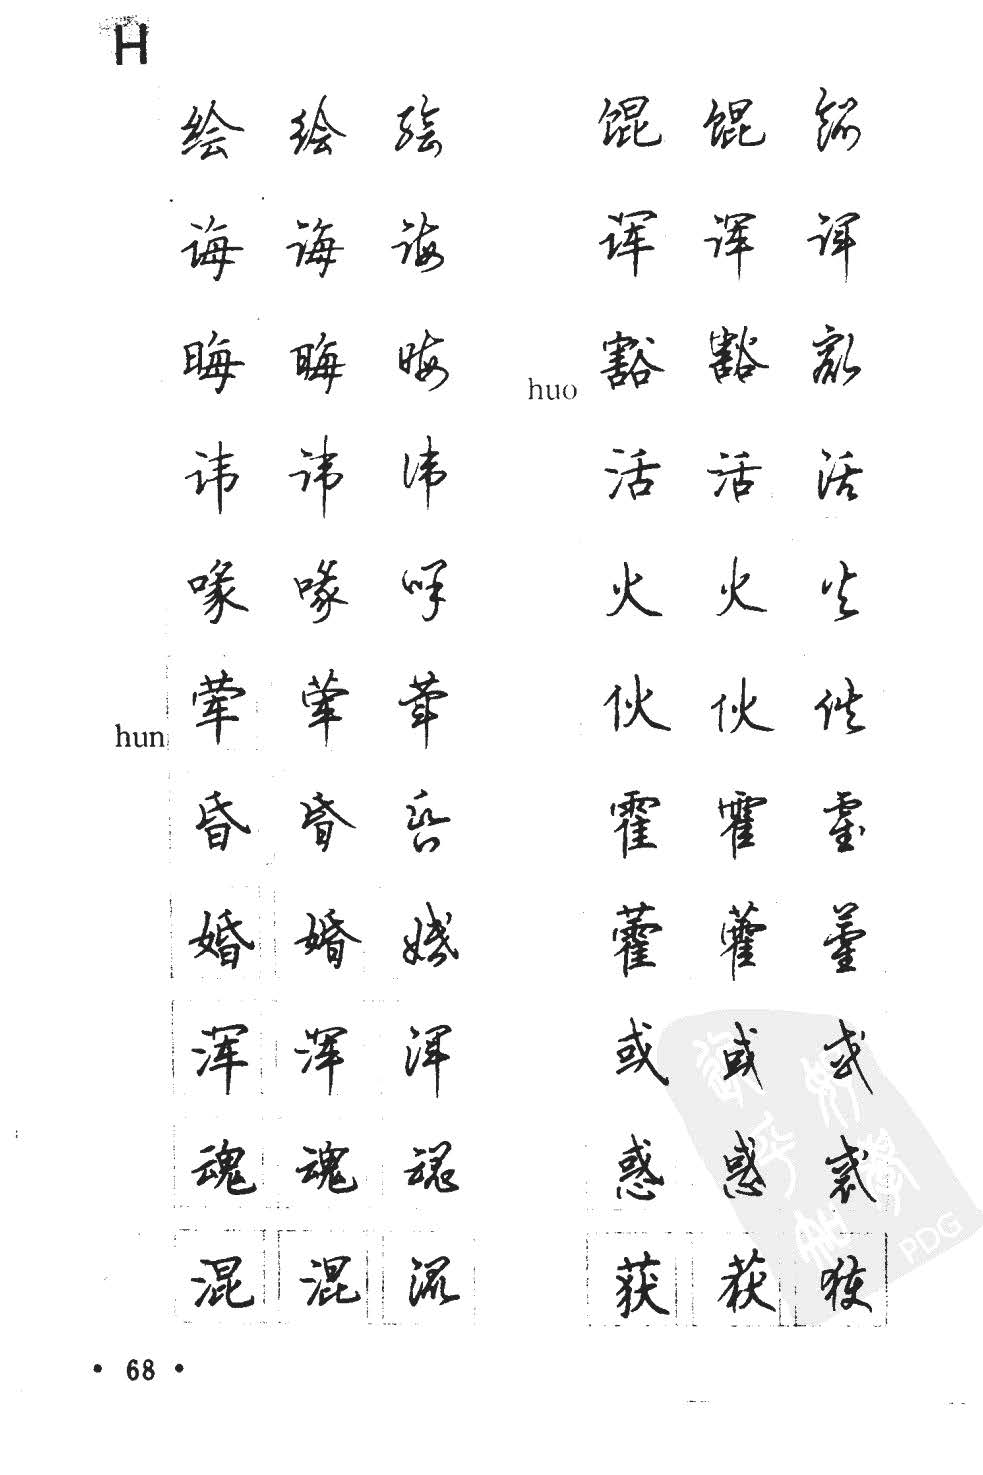 H
绘 绘 绘
诲 诲 诲
晦 晦 晦
讳 讳 讳
喙 喙 喙
hun 荤 荤 荤
昏 昏 昏
婚 婚 婚
浑 浑 浑
魂 魂 魂
混 混 混
馄 馄 馄
诨 诨 诨
huo 豁 豁 豁
活 活 活
火 火 火
伙 伙 伙
霍 霍 霍
藿 藿 藿
或 或 或
惑 惑 惑
获 获 获
PDG
• 68 •